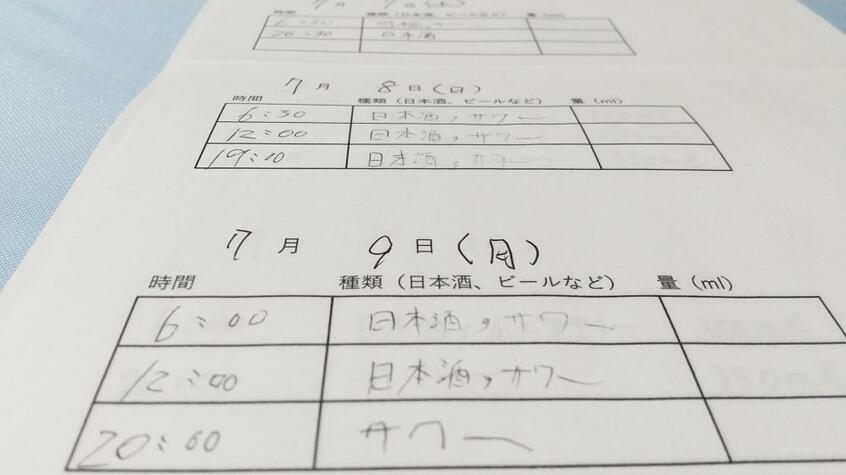 7月 7日(土)
時間 種類(日本酒、ビールなど) 量(ml)
20:30 日本酒
7月 8日(日)
時間 種類(日本酒、ビールなど) 量(ml)
6:30 日本酒,サワー
12:00 日本酒,サワー
19:00 日本酒,サワー
7月 9日(月)
時間 種類(日本酒、ビールなど) 量(ml)
6:00 日本酒,サワー
12:00 日本酒,サワー
20:00 サワー